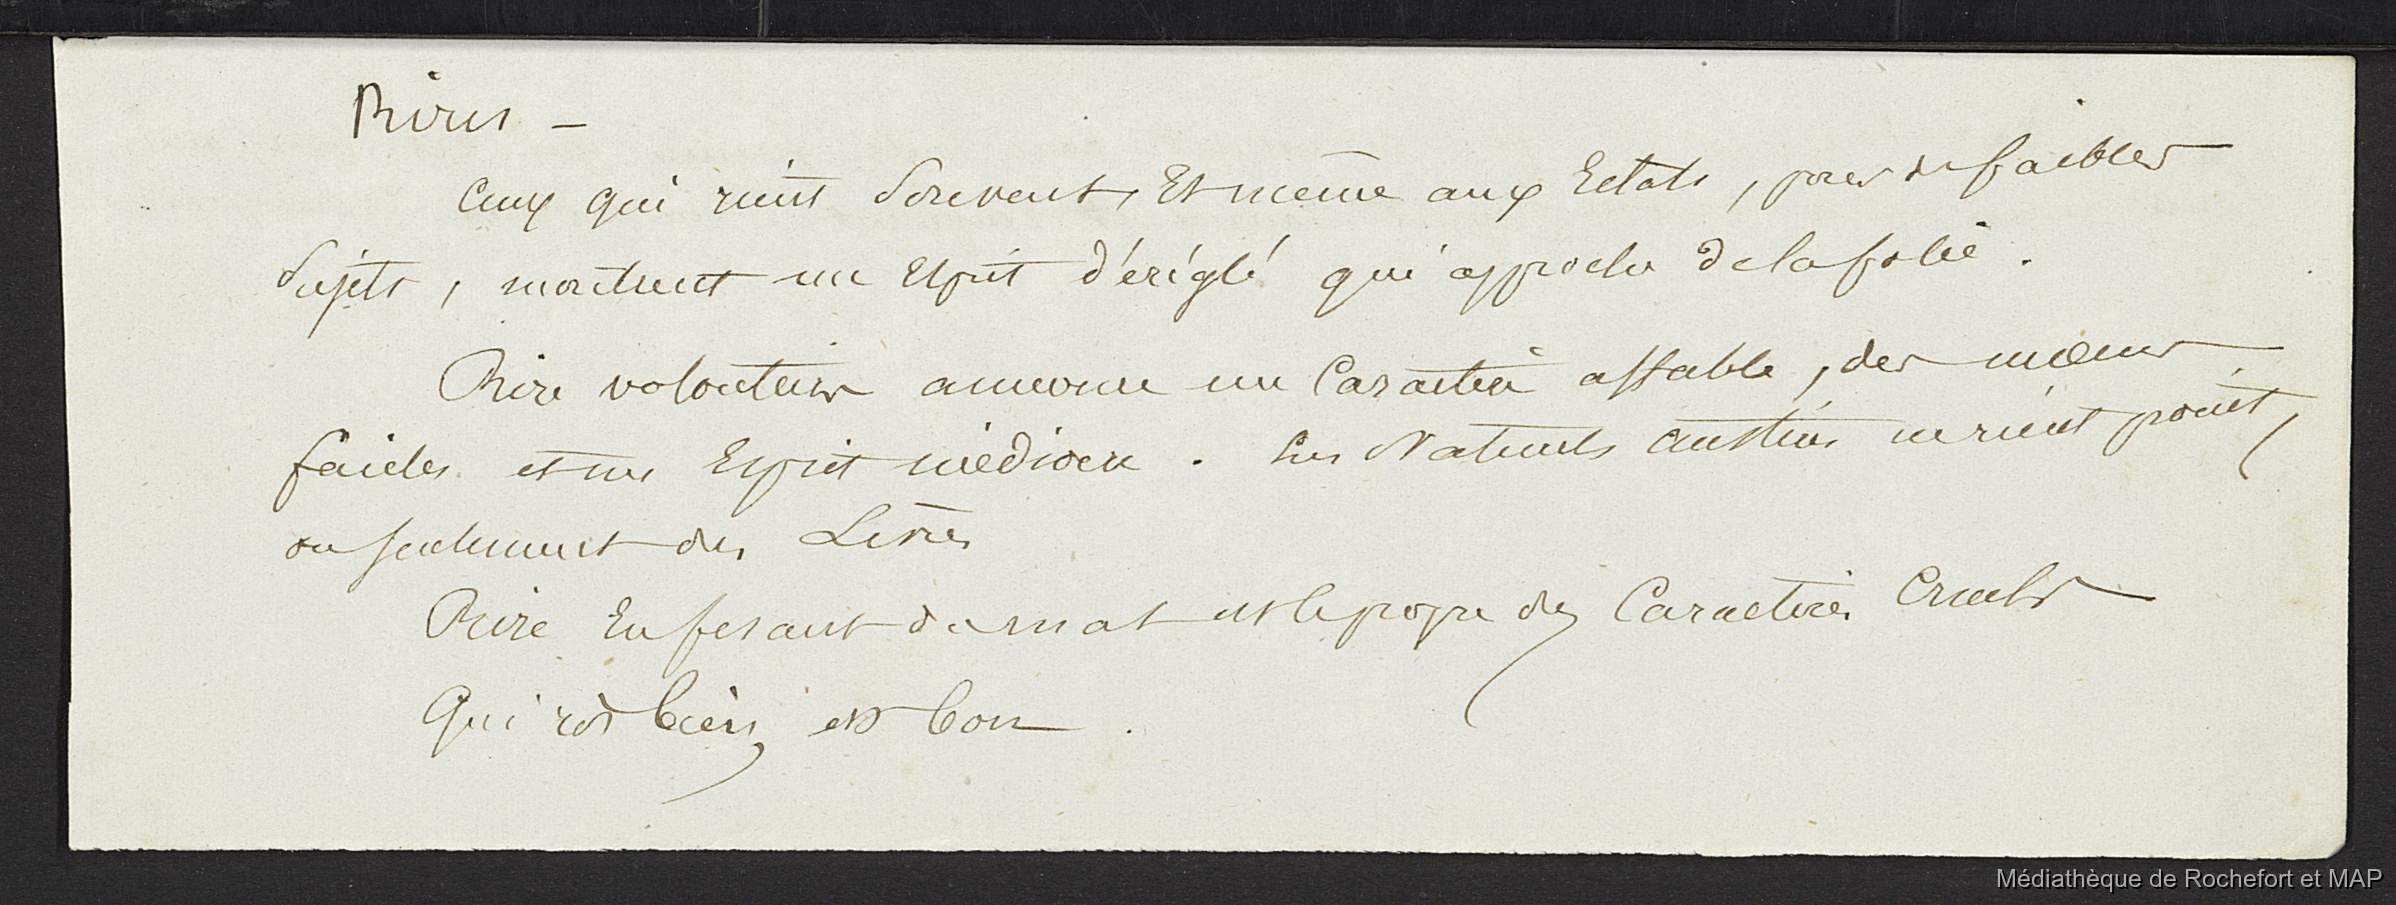 Rires —
Ceux qui rient souvent, Et même aux Eclats, pour de faibles
Sujets, montrent un Esprit d'éréglé qui approche de la folie.
Rire volontiers annonce un Caractère affable, des mœurs
faciles et un Esprit médiocre. Les Naturels austères ne rient point,
ou seulement des Lèvres
Rire En fesant du mal est le propre des Caractères Cruels
Qui rit bien est bon.
Médiathèque de Rochefort et MAP